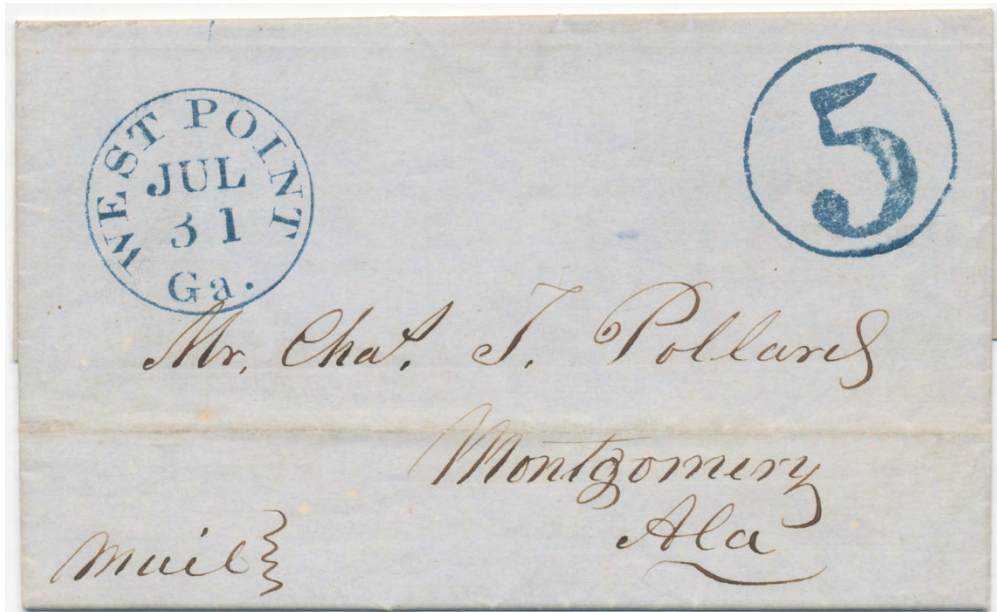 WEST POINT
JUL
31
Ga.
5
Mr. Chas. T. Pollard
Montgomery
Ala
Mail